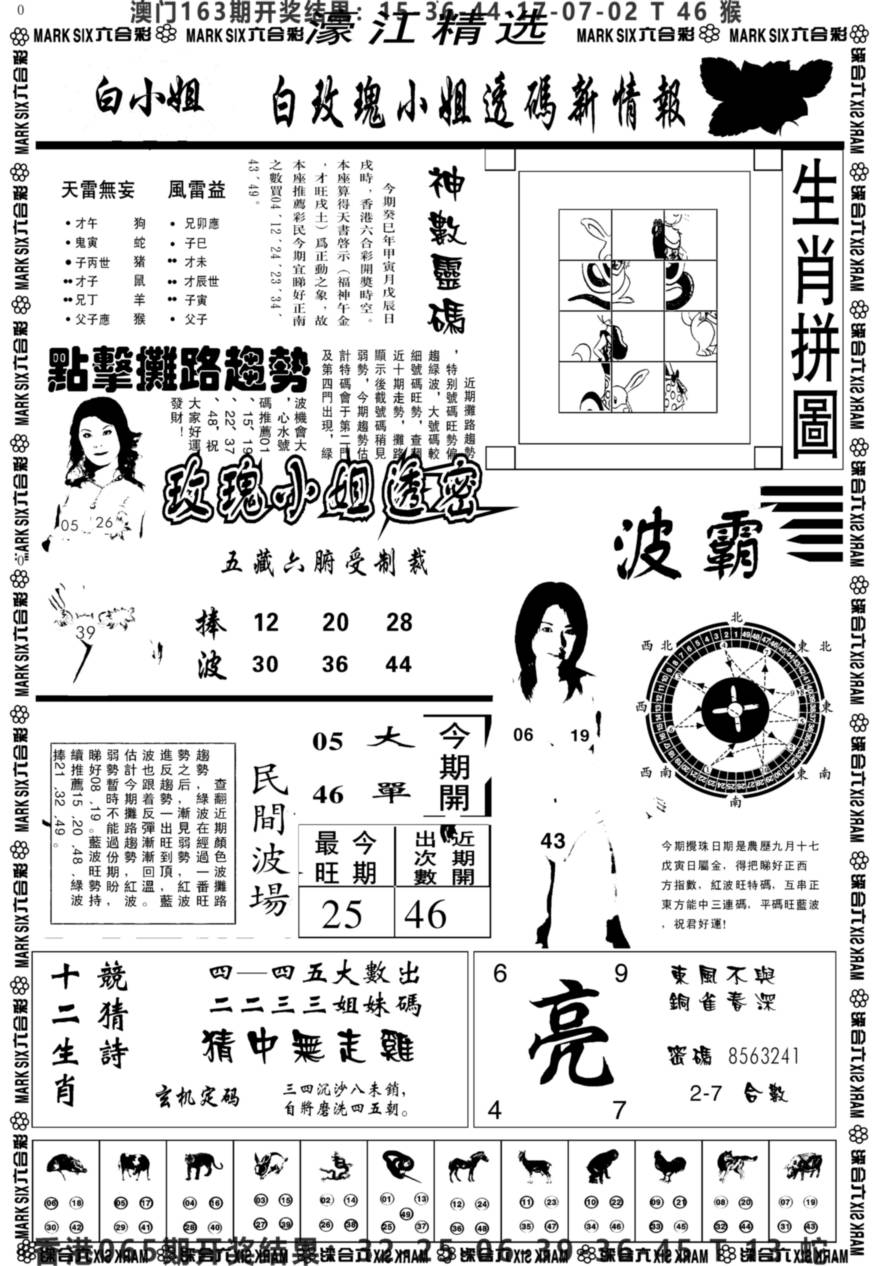 澳门163期开奖结果：15-36-44-17-07-02 T 46 猴
MARK SIX六合彩 MARK SIX六合彩 濠江精选 MARK SIX六合彩 MARK SIX六合彩
白小姐 白玫瑰小姐透碼新情報
天雷無妄 風雷益
•才午 狗 •兄卯應
•鬼寅 蛇 •子巳
●子丙世 猪 ••才未
••才子 鼠 ••才辰世
••兄丁 羊 ••子寅
•父子應 猴 •父子
神數靈碼
今期癸巳年甲寅月戊辰日
戌時，香港六合彩開獎時空。
本座算得天書啓示（福神午金
，才旺戌土）爲正動之象，故
本座推薦彩民今期宜睇好正南
之數買04、12、24、23、34、
43、49。
生肖拼圖
點擊攤路趨勢
近期攤路趨勢
，特別號碼旺勢偏
趨綠波，大號碼較
細號碼旺勢，查翻
近十期走勢，攤路
顯示後截號碼稍見
弱勢，今期趨勢估
計特碼會于第二門
及第四門出現，綠
波機會大
，心水號
碼推薦01
、15、19
、22、37
、48，祝
大家好運
發財！
05 26
39
玫瑰小姐透密
五藏六腑受制裁
捧 12 20 28
波 30 36 44
波霸
06 19
43
北
西北 東北
西 東
西南 東南
南
今期攪珠日期是農歷九月十七
戊寅日屬金，得把睇好正西
方指數，紅波旺特碼，互串正
東方能中三連碼，平碼旺藍波
，祝君好運！
查翻近期顏色攤路
趨勢，綠波在經過一番
勢之后，漸見弱勢，紅波旺
進反趨勢一出旺到頂，藍
波也跟着反彈漸漸回溫。
估計今期攤路趨勢紅波
弱勢暫時不能過份期盼，
睇好08、19。藍波旺勢持
續推薦15、20、48，綠波
捧21、32、49。
民間波場
05 大
46 單
今期開
最旺 今期
出次數 近期開
25 46
十二生肖
競猜詩
四一四五大數出
二二三三姐妹碼
猜中無走雞
玄机定码
三四沉沙八未銷，
自將磨洗四五朝。
6 9
亮
4 7
東風不與
銅雀春深
密碼 8563241
2-7 合數
06 18 05 17 04 16 03 15 02 14 01 13 12 24 11 23 10 22 09 21 08 20 07 19
49
30 42 29 41 28 40 27 39 26 38 25 37 36 48 35 47 34 46 33 45 32 44 31 43